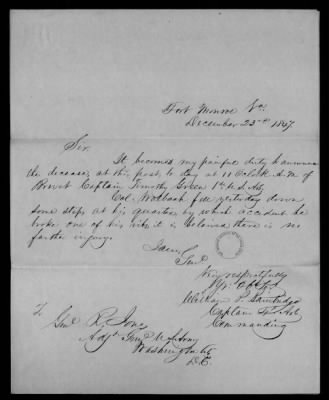 Fort Monroe Va.
December 23rd 1847.
Sir.
It becomes my painful duty to announce
the decease, at this post, to day at 11 O'Clk A.M. of
Brevet Captain Timothy Green 1st U.S. Arty.
Col. Walbach fell yesterday down
some steps at his quarters by which accident he
broke one of his ribs, it is believed, there is no
farther injury.
I am,
Genl.
Very respectfully
Yr. Obt. Svt.
Captain Arty
Commanding
To
Genl. R. Jones
Adjt. Genl. U.S. Army
Washington City
D.C.